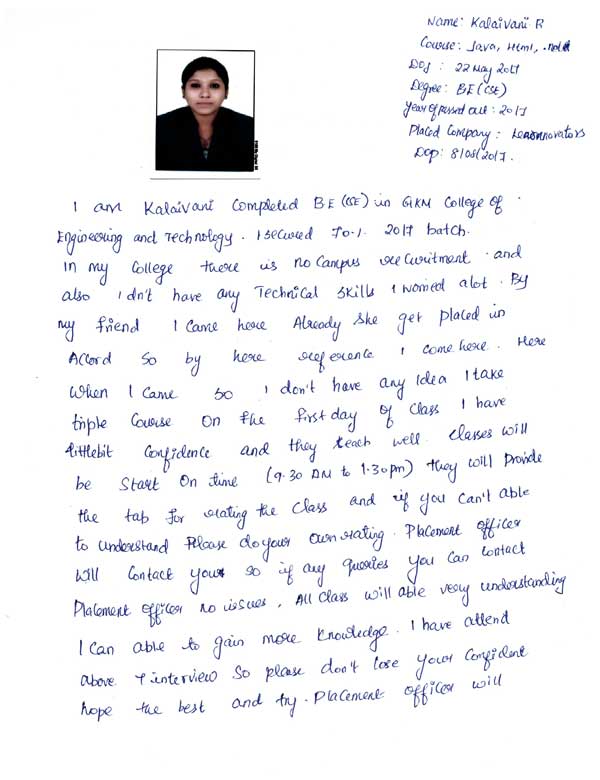 Name: Kalaivani R
Course: Java, Html, .net
DOJ : 22 May 2017
Degree: BE (CSE)
Year of passed out : 2017
Placed Company : Learnnovators
Dop: 8/08/2017.
I am Kalaivani Completed BE (CSE) in GKM College of
Engineering and Technology. I secured 70.1. 2017 batch.
In my College there is no Campus recuritment and
also I dn't have any Technical Skills I worried alot. By
my friend I came here Already she get placed in
Accord So by here reference I come here. Here
When I Came so I don't have any Idea I take
triple Course On the first day of class I have
littlebit Confidence and they teach well. Classes will
be Start On time (9.30 AM to 1.30pm) they will Provide
the tab for rating the class and if you can't able
to understand Please do your own rating. Placement officer
will Contact your so if any queries you can contact
Placement officer no issues. All class will able very understanding
I Can able to gain more Knowledge. I have attend
above 7 interview So please don't lose your Confident
hope the best and try. Placement officer will